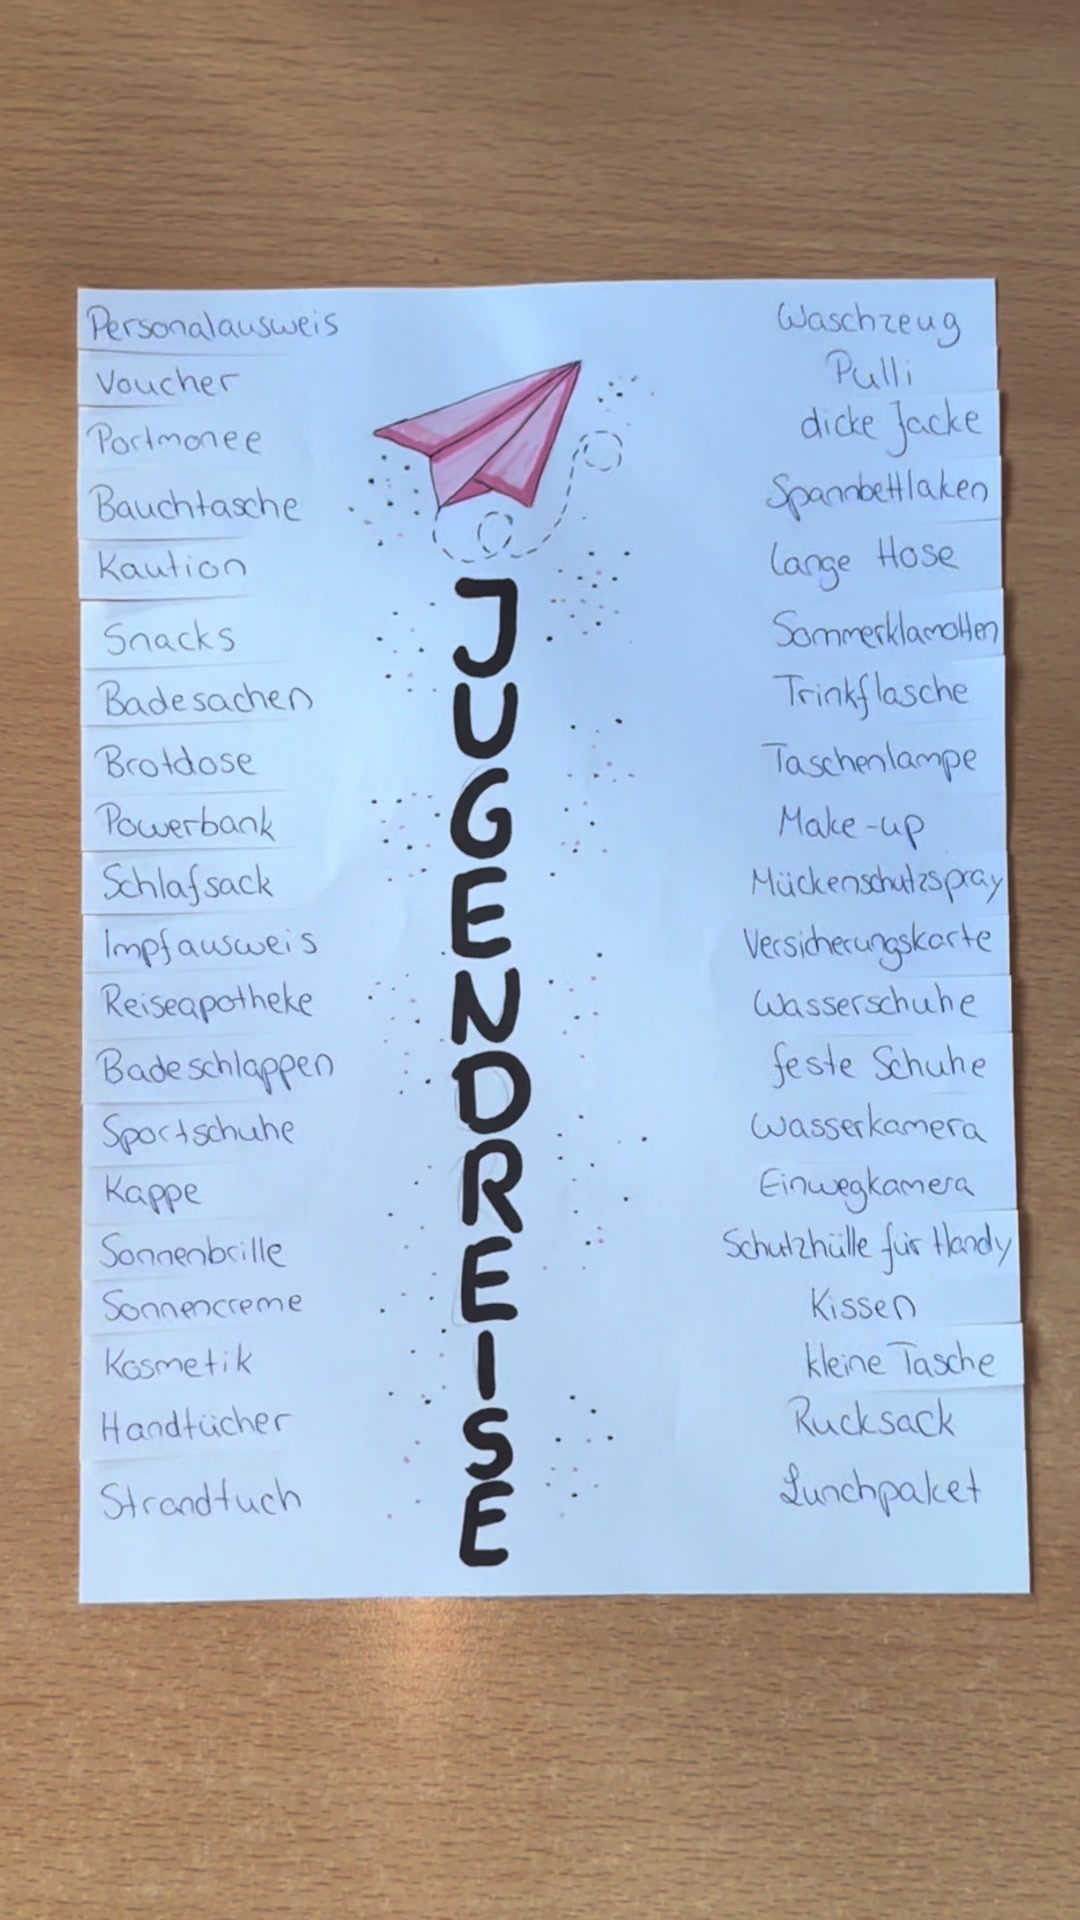 Personalausweis
Voucher
Portmonee
Bauchtasche
Kaution
Snacks
Badesachen
Brotdose
Powerbank
Schlafsack
Impfausweis
Reiseapotheke
Badeschlappen
Sportschuhe
Kappe
Sonnenbrille
Sonnencreme
Kosmetik
Handtücher
Strandtuch
JUGENDREISE
Waschzeug
Pulli
dicke Jacke
Spannbettlaken
lange Hose
Sommerklamotten
Trinkflasche
Taschenlampe
Make-up
Mückenschutzspray
Versicherungskarte
Wasserschuhe
feste Schuhe
Wasserkamera
Einwegkamera
Schutzhülle für Handy
Kissen
kleine Tasche
Rucksack
Lunchpaket